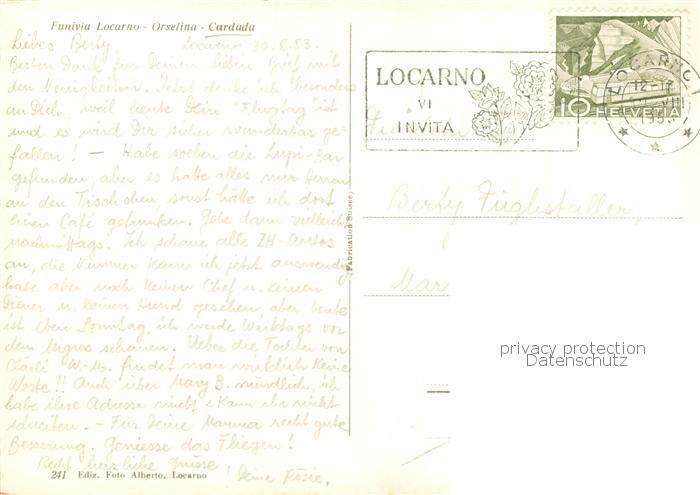 Funivia Locarno - Orselina - Cardada
Liebes Berty, Locarno 30.8.53.
Besten Dank für Deinen lieben Brief mit
den Neuigkeiten. Jetzt denke ich besonders
an Dich, weil heute Dein "Flugtag" ist
und es wird Dir sicher wunderbar ge-
fallen! - Habe soeben die Lupi-Bar
gefunden, aber es hatte alles nur Herren
an den Tischchen, sonst hätte ich dort
einen Café getrunken. Gehe dann vielleicht
nachmittags. Ich schaue alle ZH-Autos
an, die Nummer kann ich jetzt auswendig
habe aber noch keinen Chef u. keinen
Diener u. keinen Hund gesehen, aber heute
ist eben Sonntag, ich werde Werktags vor
dem Migros schauen. Ueber die Tochter von
W.-Ms. findet man wirklich keine
Worte!! Auch über Mary B. mündlich, ich
habe ihre Adresse nicht & kann ihr nicht
schreiben. - Für Deine Mamma recht gute
Besserung. Geniesse das Fliegen!
Recht herzliche Grüsse
Deine Rösie.
241 Ediz. Foto Alberto, Locarno
(Fabrication Suisse)
LOCARNO
VI
INVITA
10 HELVETIA
LOCARNO 1
12-
VIII
Berty Füglistaller,
Mar
privacy protection
Datenschutz